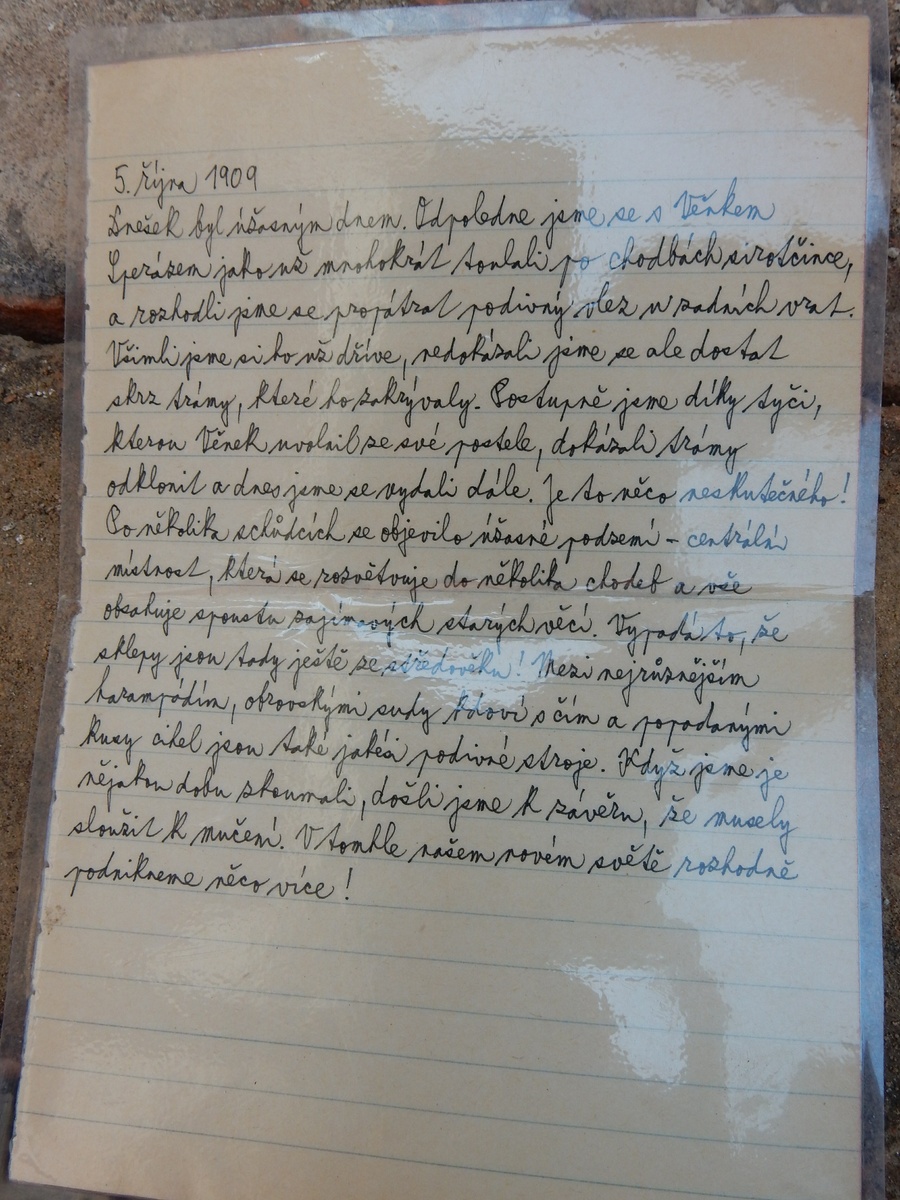 5. října 1909
Dnešek byl úžasným dnem. Odpoledne jsme se s Věnkem
jako už mnohokrát toulali po chodbách sirotčince,
a rozhodli jsme se propátrat podivný vlez u zadních vrat.
Všimli jsme si ho už dříve, nedokázali jsme se ale dostat
skrz trámy, které ho zakrývaly. Postupně jsme díky tyči,
kterou Věnek uvolnil ze své postele, dokázali trámy
odklonit a dnes jsme se vydali dále. Je to něco neskutečného!
Po několika schůdcích se objevilo úžasné podzemí - centrální
místnost, která se rozvětvuje do několika chodeb a vše
obsahuje spoustu zajímavých starých věcí. Vypadá to, že
sklepy jsou tady ještě ze středověku! Mezi nejrůznějším
harampádím, obrovskými sudy kdoví s čím a popadanými
kusy cihel jsou také jakési podivné stroje. Když jsme je
nějakou dobu zkoumali, došli jsme k závěru, že musely
sloužit k mučení. V tomhle našem novém světě rozhodně
podnikneme něco více!